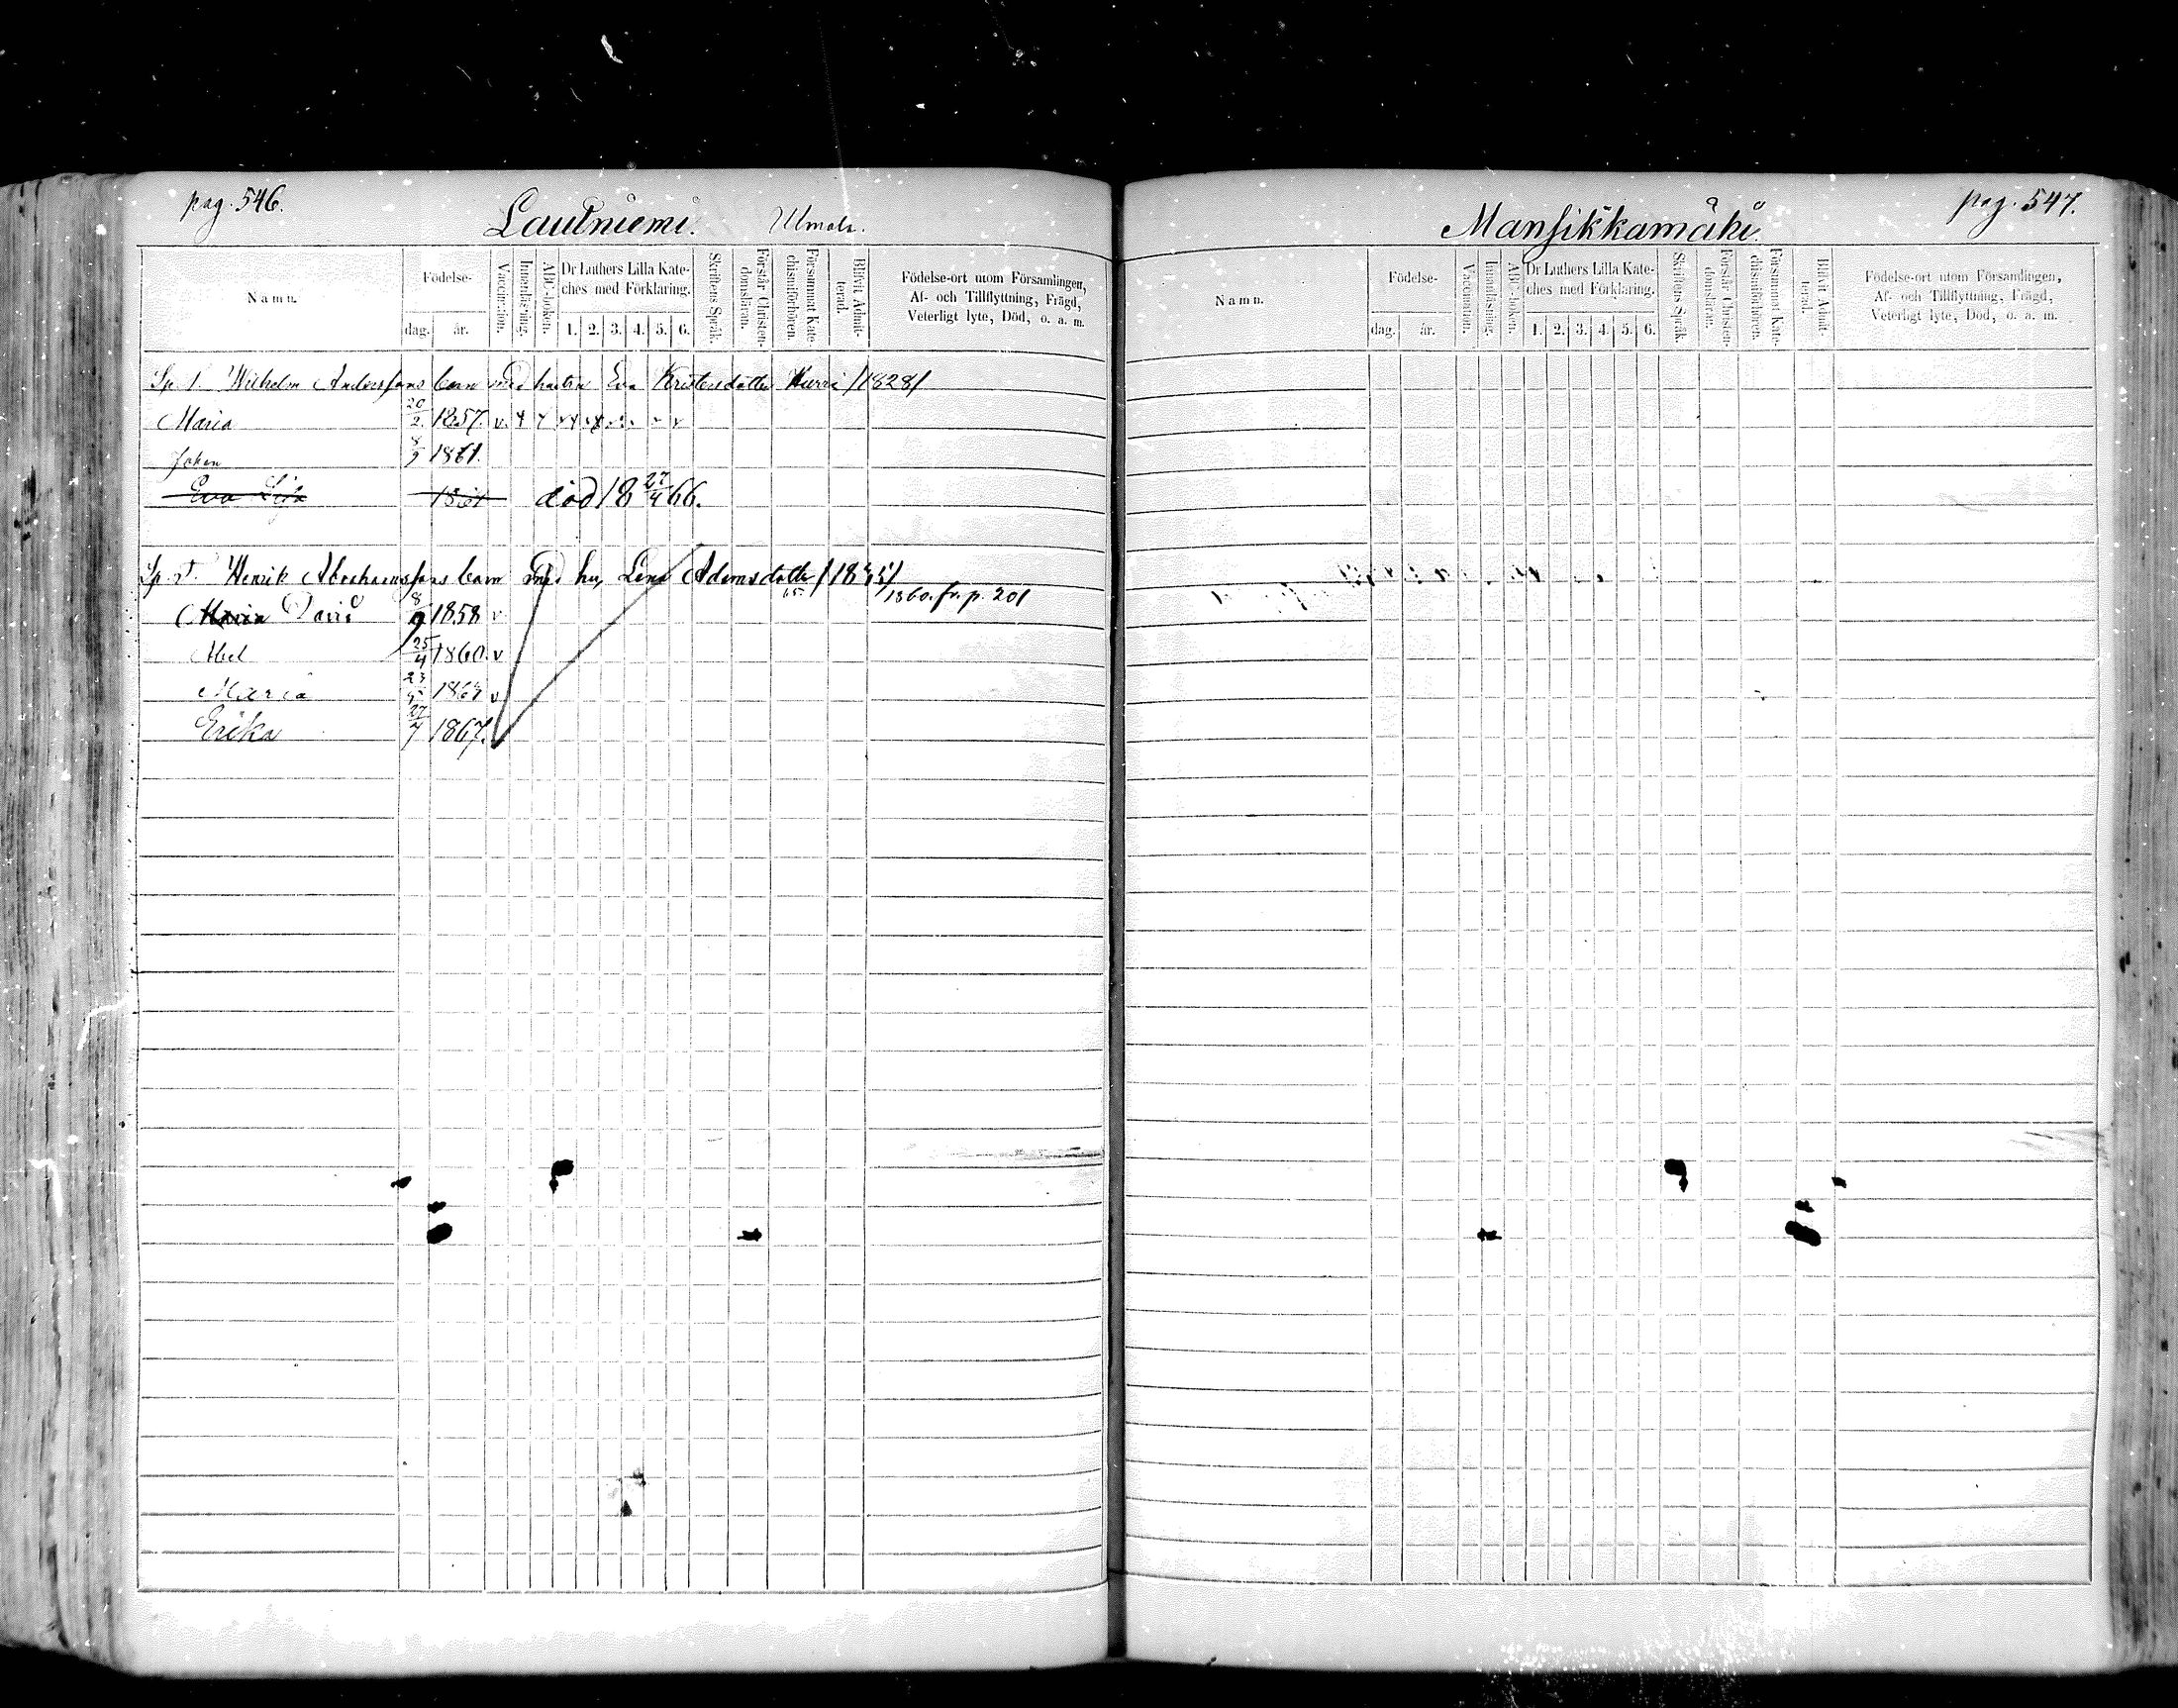 pag. 546.
Lautniemi.
Namn.
Födelse-
dag.
år.
Vaccination.
Innanläsning.
ABC-boken.
Dr Luthers Lilla Kate-
ches med Förklaring.
1. 2. 3. 4. 5. 6.
Skriftens Språk.
Förstår Christen-
domsläran.
Försummat Kate-
chismiförhören.
Blifvit Admit-
terad.
Födelse-ort utom Församlingen,
Af- och Tillflyttning, Frägd,
Veterligt lyte, Död, o. a. m.
Sp. 1. Wilhelm Anderssons barn med hustru Eva Kristersdotter /1828/
Maria 20/2 1857. v.
Johan 1861.
Eva Lisa död 18 27/4 66.
Henrik Abrahamssons barn med hu, Lena Adamsdotter
1860. fr. p. 201
Maria David 8/9 1858 v
Abel 25/4 1860. v
Maria v
Erika 1867.
pag. 547.
Mansikkamäki.
Namn.
Födelse-
dag.
år.
Vaccination.
Innanläsning.
ABC-boken.
Dr Luthers Lilla Kate-
ches med Förklaring.
1. 2. 3. 4. 5. 6.
Skriftens Språk.
Förstår Christen-
domsläran.
Försummat Kate-
chismiförhören.
Blifvit Admit-
terad.
Födelse-ort utom Församlingen,
Af- och Tillflyttning, Frägd,
Veterligt lyte, Död, o. a. m.